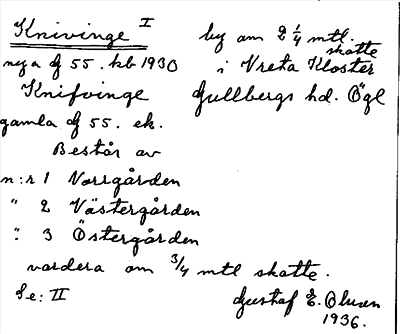 Knivinge I by om 2 1/4 mtl. skatte
nya df 55. kb 1930 i Vreta Kloster
Knifvinge Gullbergs hd. Ögl
gamla df 55. ek.
Består av
n:r 1 Norrgården
" 2 Västergården
" 3 Östergården
vardera om 3/4 mtl skatte.
Se: II Gustaf E. Olsson
1936.